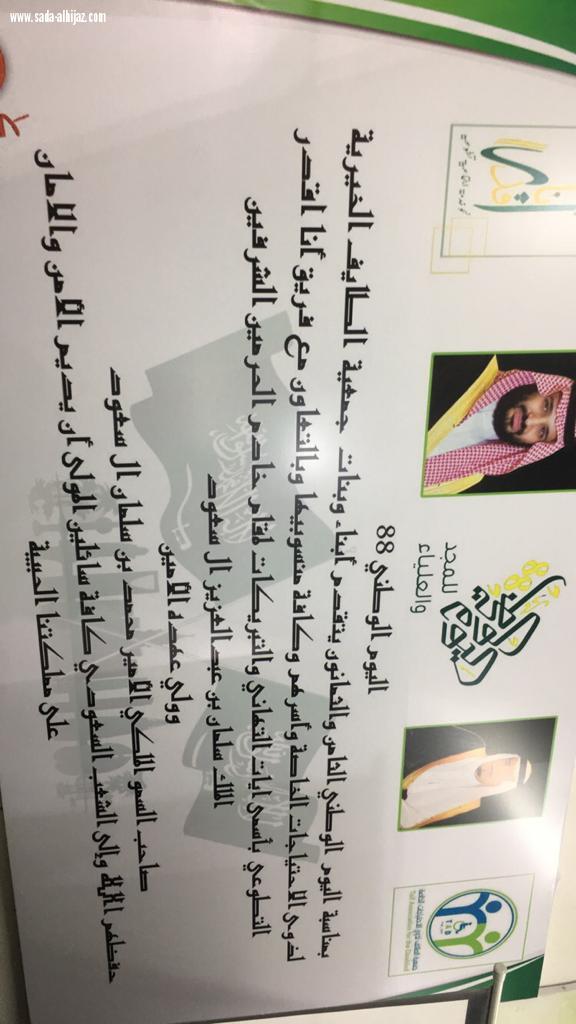 www.sada-alhijaz.com
أنا أقدر
اليوم الوطني
88
للمجد
والعلياء
Taif Association for the Disabled
TAD
اليوم الوطني 88
بمناسبة اليوم الوطني الثامن والثمانون يتقدم أبناء وبنات جمعية الطايف الخيرية
لذوي الاحتياجات الخاصة وأسرهم وكافة منسوبيها وبالتعاون مع فريق أنا اقدر
التطوعي بأسمى ايات التهاني والتبريكات لمقام خادم الحرمين الشرفين
الملك سلمان بن عبد العزيز ال سعود
وولي عهده الأمين
صاحب السمو الملكي الأمير محمد بن سلمان ال سعود
حفظهم الله وإلى الشعب السعودي كافة سائلين المولى أن يديم الأمن والامان
على مملكتنا الحبيبة